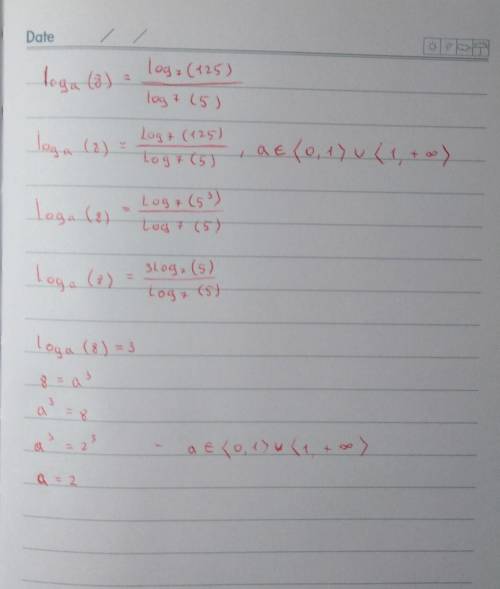 Date / /
log_a (8) = log_7 (125) / log_7 (5)
log_a (8) = log_7 (125) / log_7 (5), a ∈ ⟨0,1⟩ ∪ ⟨1, +∞⟩
log_a (8) = log_7 (5³) / log_7 (5)
log_a (8) = 3log_7 (5) / log_7 (5)
log_a (8) = 3
8 = a³
a³ = 8
a³ = 2³ - a ∈ ⟨0,1⟩ ∪ ⟨1, +∞⟩
a = 2